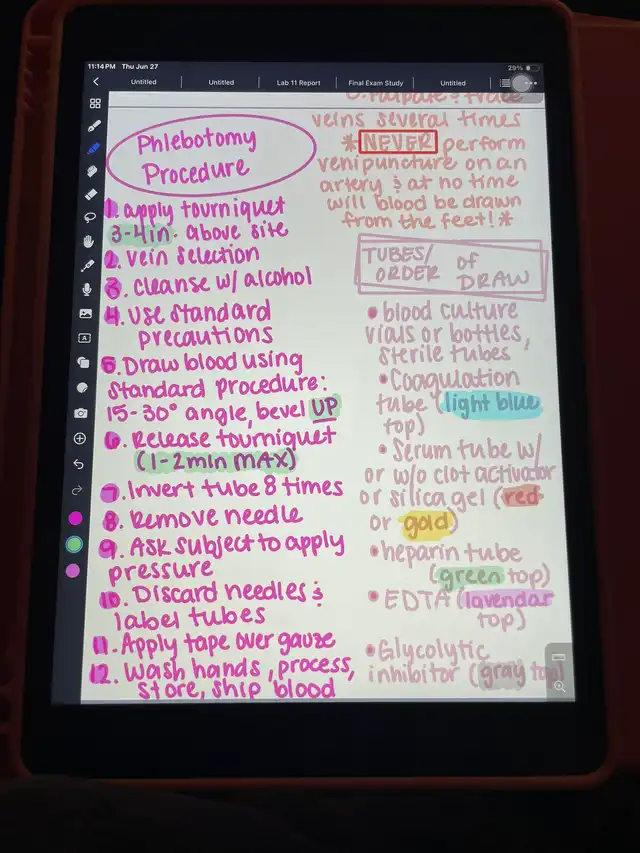 11:14 PM Thu Jun 27
29%
Untitled
Untitled
Lab 11 Report
Final Exam Study
Untitled
Phlebotomy
Procedure
1. apply tourniquet
3-4in. above site
2. vein selection
3. cleanse w/ alcohol
4. use standard
precautions
5. Draw blood using
standard procedure:
15-30° angle, bevel UP
6. Release tourniquet
(1-2min MAX)
7. Invert tube 8 times
8. Remove needle
9. Ask subject to apply
pressure
10. Discard needles &
label tubes
11. Apply tape over gauze
12. Wash hands, process,
store, ship blood
veins several times
*NEVER perform
venipuncture on an
artery & at no time
will blood be drawn
from the feet!*
TUBES/
ORDER of
DRAW
• blood culture
vials or bottles,
sterile tubes
• Coagulation
tube (light blue
top)
• Serum tube w/
or w/o clot activator
or silica gel (red
or gold)
• heparin tube
(green top)
• EDTA (lavendar
top)
• Glycolytic
inhibitor (gray top)